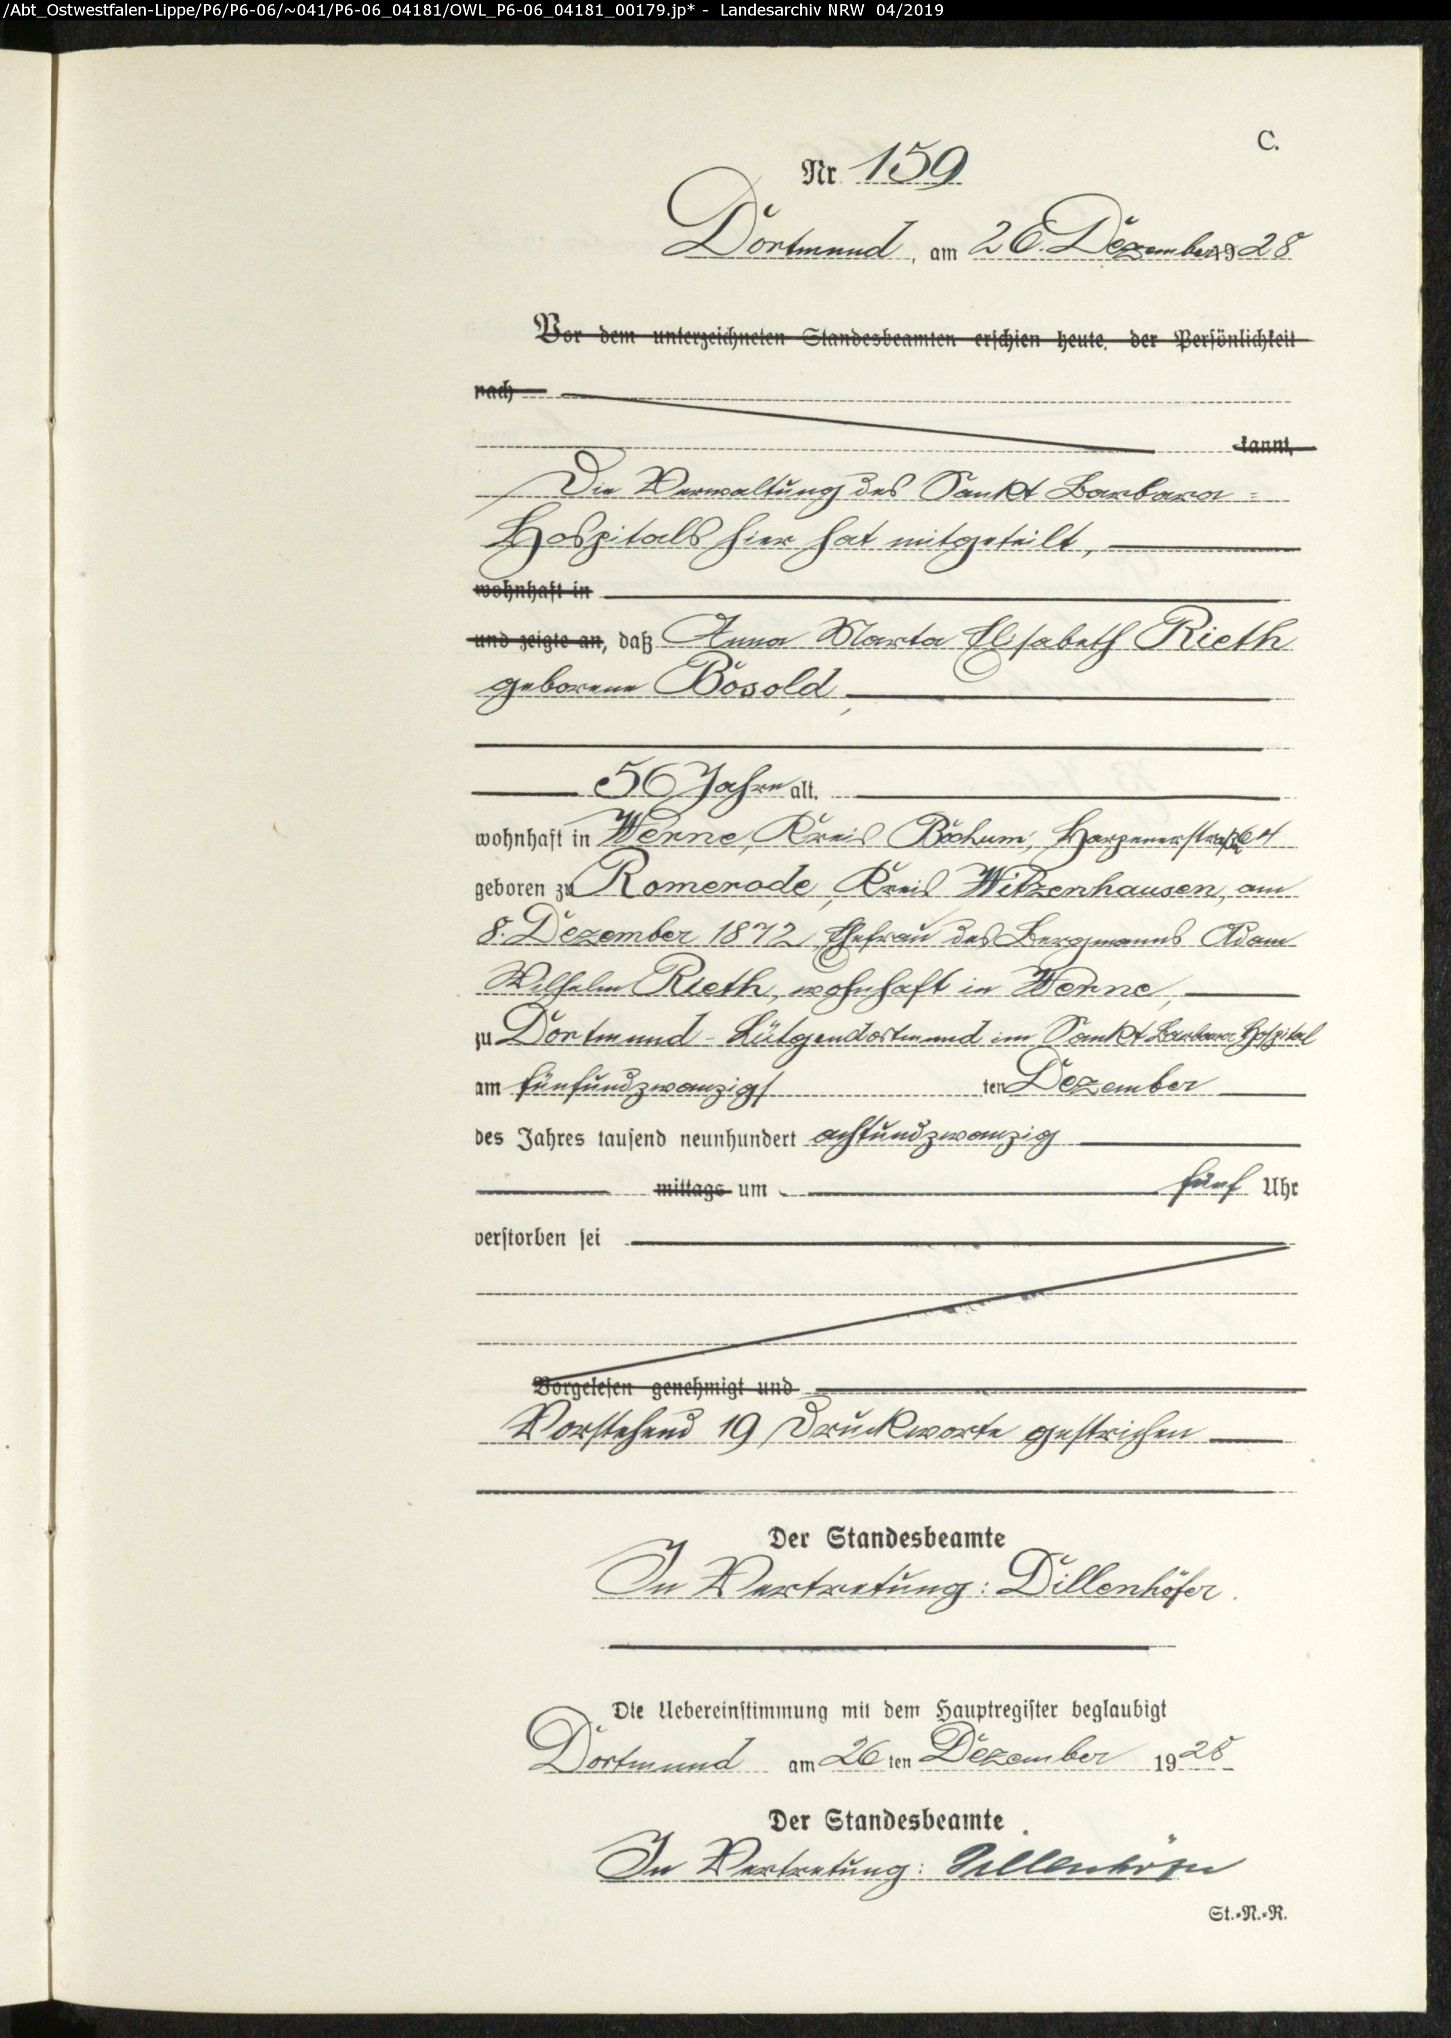 /Abt_Ostwestfalen-Lippe/P6/P6-06/~041/P6-06_04181/OWL_P6-06_04181_00179.jp* - Landesarchiv NRW 04/2019
C.
Nr 159
Dortmund, am 26. Dezember 1928
Vor dem unterzeichneten Standesbeamten erschien heute, der Persönlichkeit
nach
kannt,
Die Verwaltung des Sankt Barbara=
Hospitals hier hat mitgeteilt,
wohnhaft in
und zeigte an, daß Anna Marta Elisabeth Rieth
geborene Bösold,
56 Jahre alt,
wohnhaft in Werne, Kreis Bochum, Harpenerstraße 64
geboren zu Romerode, Kreis Witzenhausen, am
8. Dezember 1872, Ehefrau des Bergmanns Adam
Wilhelm Rieth, wohnhaft in Werne,
zu Dortmund-Lütgendortmund im Sankt Barbara Hospital
am fünfundzwanzigs ten Dezember
des Jahres tausend neunhundert achtundzwanzig
mittags um fünf Uhr
verstorben sei
Vorgelesen genehmigt und
Vorstehend 19 Druckworte gestrichen
Der Standesbeamte
In Vertretung: Dillenhöfer.
Die Uebereinstimmung mit dem Hauptregister beglaubigt
Dortmund am 26 ten Dezember 1928
Der Standesbeamte
In Vertretung: Dillenhöfer
St.-N.-R.